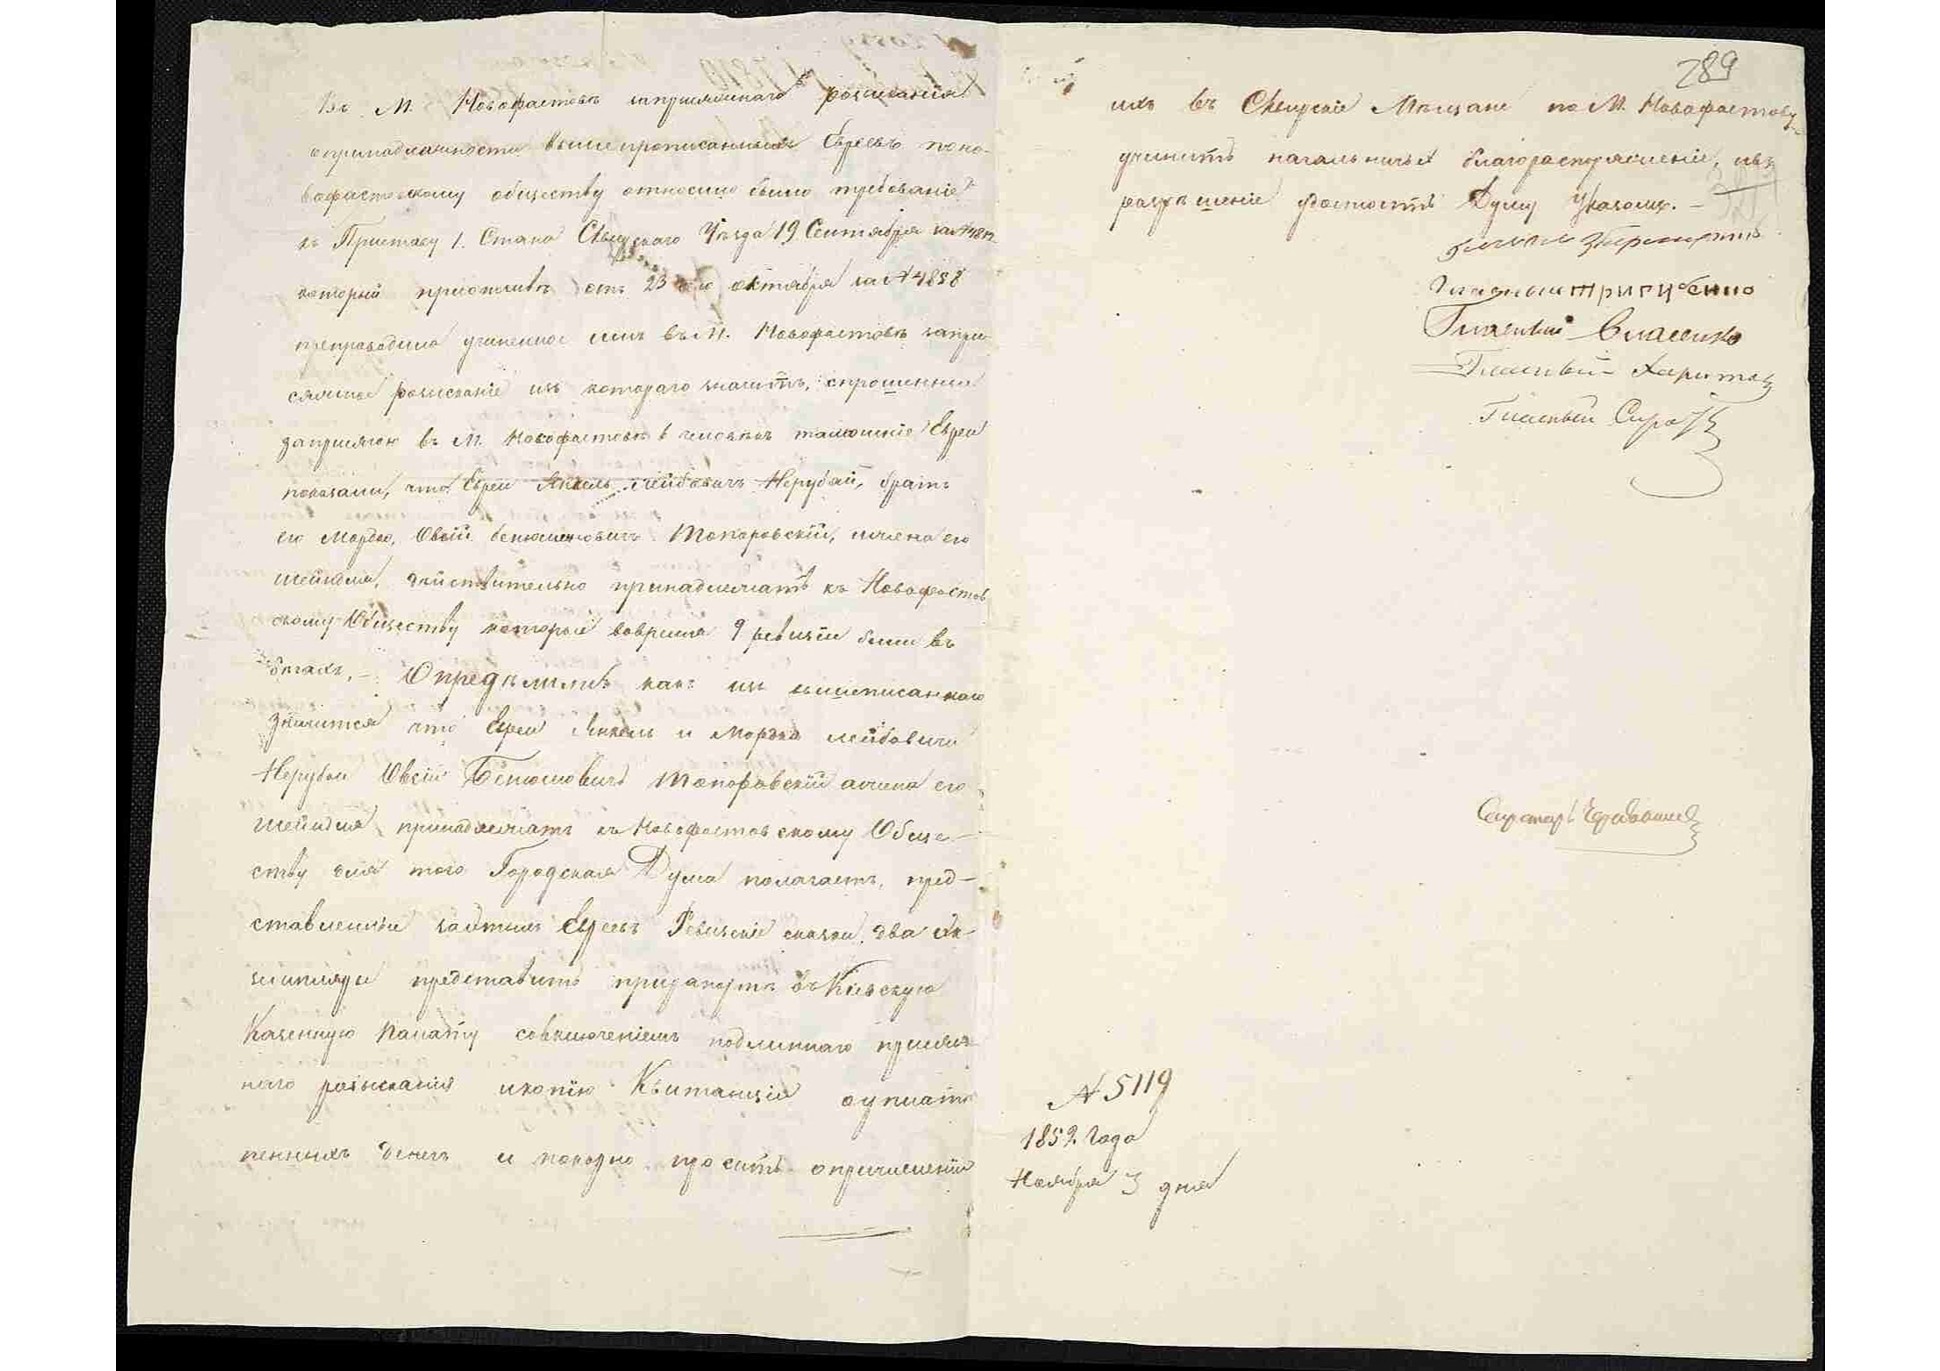 Въ М. Новофастовѣ заприсяжнаго розысканія
опринадлежности вышепрописанныхъ Евреевъ поно-
вофастовскому обществу относимо было требованіе
къ Приставу 1. Стана Сквирскаго Уѣзда 19 Сентября за №
который приотзывѣ отъ 23 октября за № 4858
препроводилъ учиненное имъ въ М. Новофастовѣ запри-
сяжное розысканіе изъ котораго значитъ, спрошенные
заприсягою въ М. Новофастовѣ 6 человѣкъ тамошніе Евреи
показали, что Евреи Янкель Лейбовичъ Нерубай, братъ
его Мордко, Овсій Бенюминовичъ Топоровскій, ижена его
Шейндля, дѣйствительно принадлежатъ къ Новофастов
скому Обществу которые вовремя 9 ревизіи были въ
бѣгахъ, — Опредѣлили какъ изъ вышеписаннаго
значится что Евреи Янкель и Мордко Лейбовичи
Нерубаи Овсій Бенюмовичъ Топоровскій ижена его
Шейндля, принадлежатъ къ Новофастовскому Обще-
ству для того Городская Дума полагаетъ, пред-
ставленные Евреевъ Ревизскіе сказки два Эк-
земпляра представить прирапортѣ въ Кіевскую
Казенную Палату совключеніемъ подлиннаго присяж-
наго розысканія икопію Квитанціи оуплатѣ
пенныхъ денегъ и покорно проситъ опричисленіи
289
ихъ въ Сквирскіе Мѣщане по М. Новофастову
учинить начальничье благораспоряженіе, ивъ
разрѣшеніе удостоить Думу Указомъ. —
Гласный Тригубенко
Гласный Власенко
Гласный Харито
Гласный
Секретарь
№ 5119
1852 Года
Ноября 3 дня